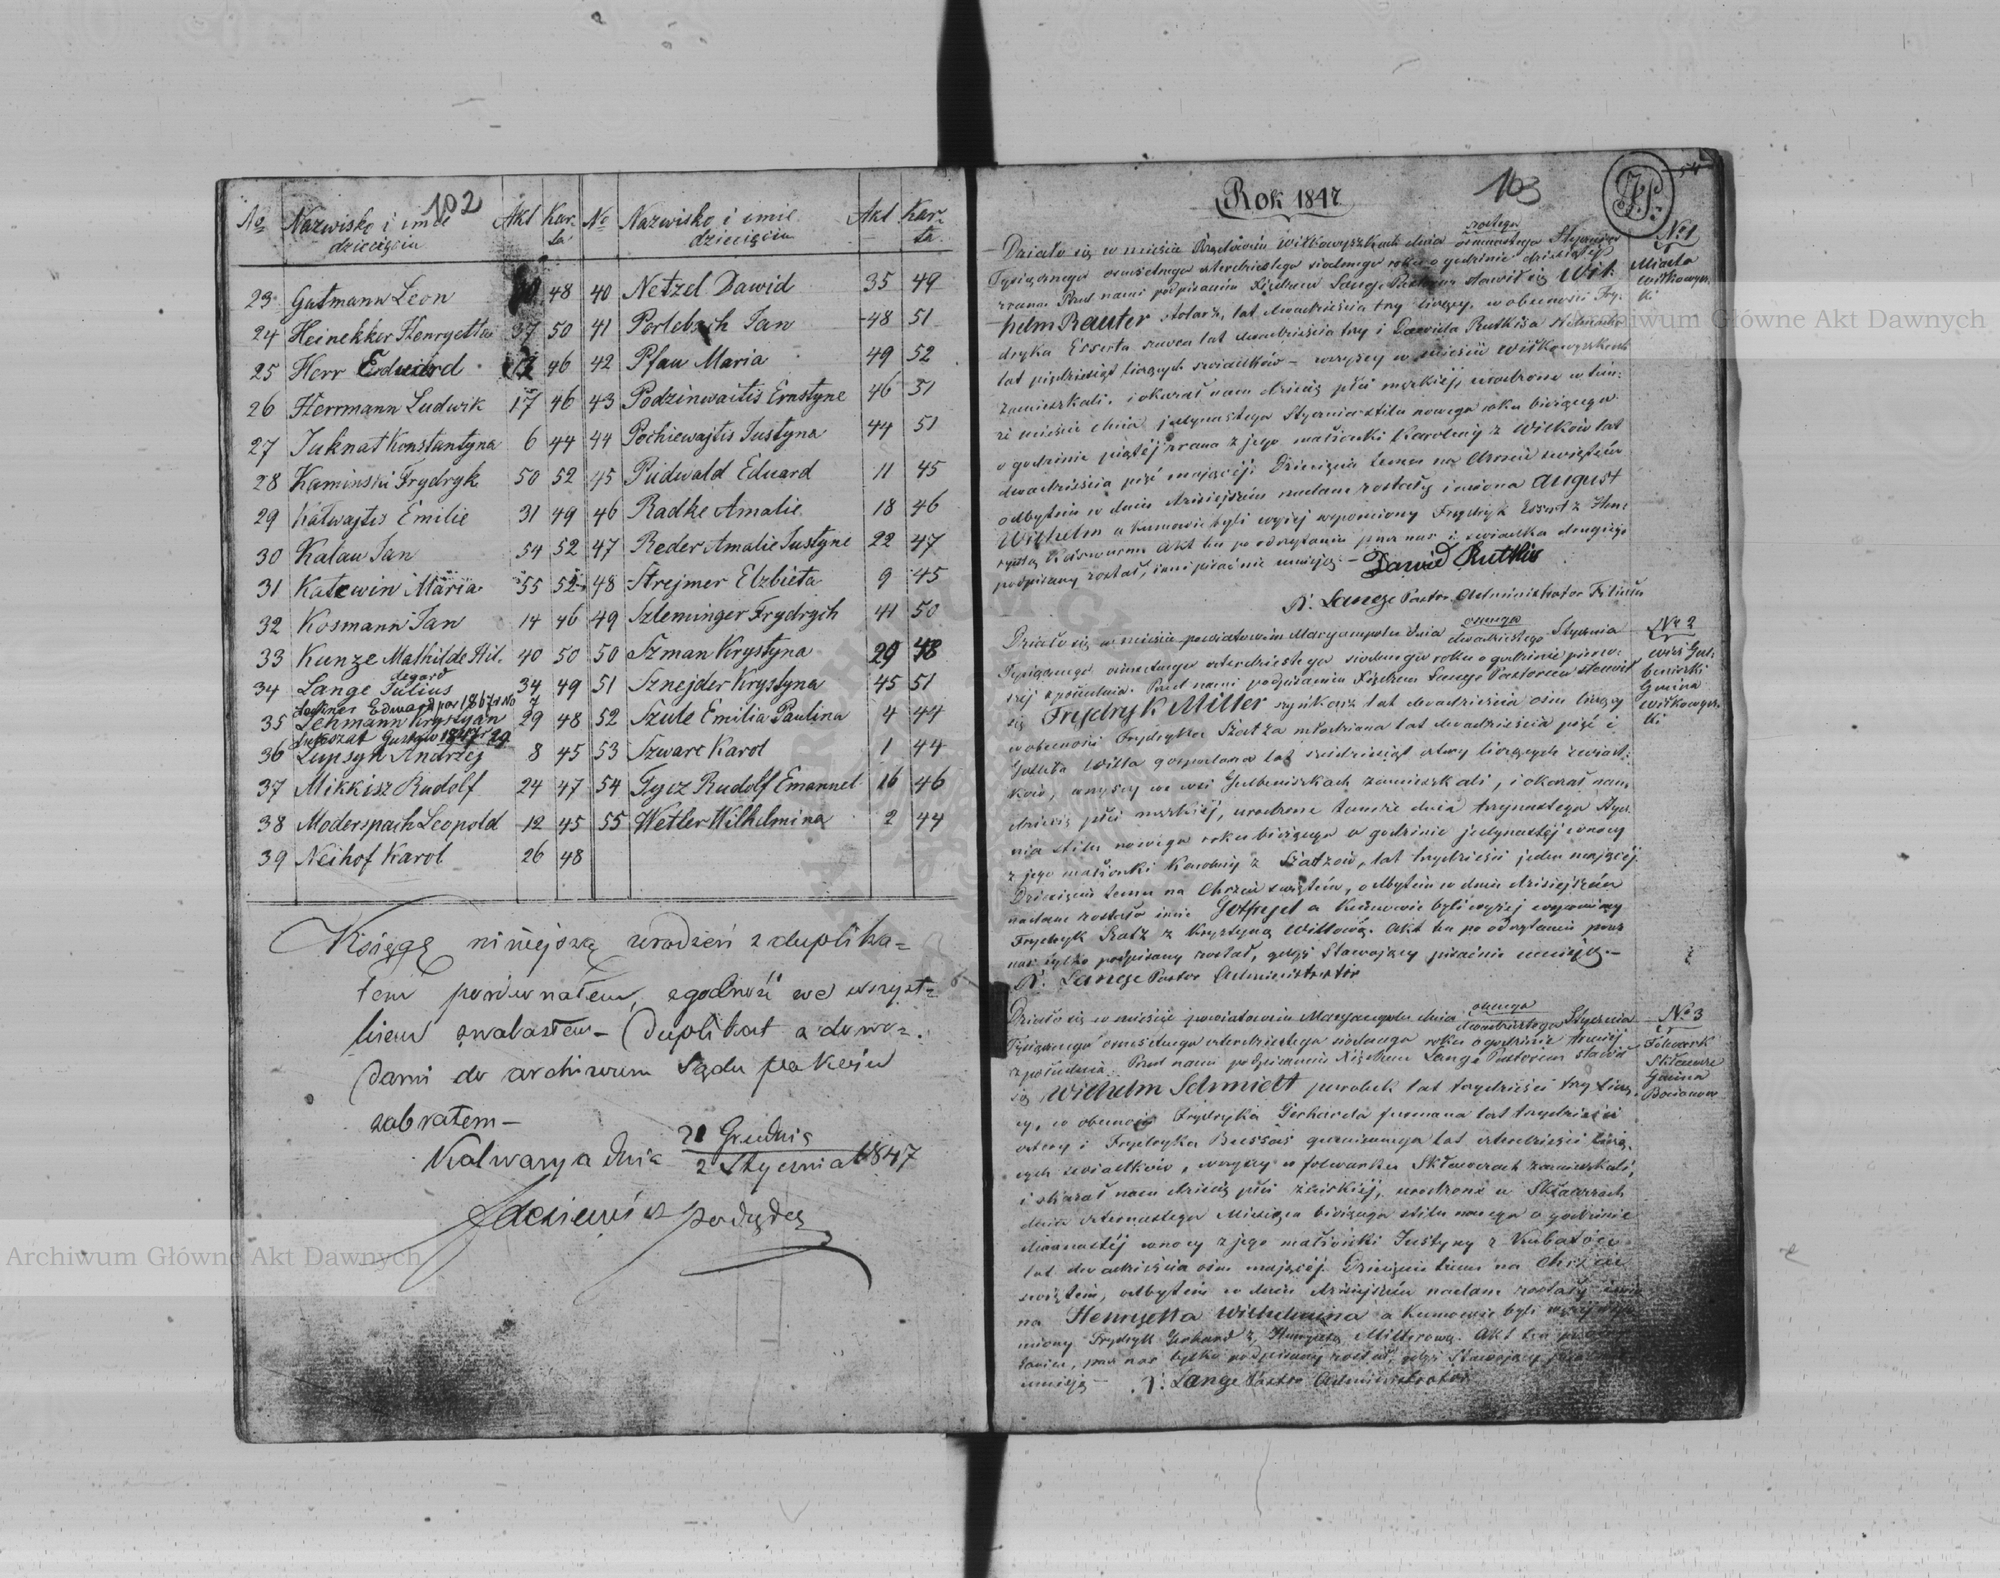 102
No Nazwisko i imie dziecięcia Akt Karta No Nazwisko i imie dziecięcia Akt Karta
23 Gutmann Leon 48 40 Netzel Dawid 35 49
24 Heinekker Henryetta 37 50 41 Perlebach Jan 48 51
25 Herr Eduard 46 42 Pfau Maria 49 52
26 Herrmann Ludwik 17 46 43 Podzinwaitis Ernstyne 46 51
27 Juknat Konstantyna 6 44 44 Pochiewajtis Justyna 44 51
28 Kaminski Frydryk 50 52 45 Pudwald Eduard 11 45
29 Kalwajtis Emilie 31 49 46 Radke Amalie 18 46
30 Kalau Jan 54 52 47 Reder Amalie Justyne 22 47
31 Katewin Maria 55 52 48 Strejmer Elzbieta 9 45
32 Kosmann Jan 14 46 49 Szleminger Frydrych 41 50
33 Kunze Mathilde Hildegard 40 50 50 Szman Krystyna 29 48
34 Lange Julius 34 49 51 Sznejder Krystyna 45 51
Edward 1867 r No 7
35 Lehmann Krystyan 29 48 52 Szule Emilia Paulina 4 44
Gustaw 1847 r 29
36 Lupsyn Andrzej 8 45 53 Szwarc Karol 1 44
37 Mikkisz Rudolf 24 47 54 Tycz Rudolf Emanuel 16 46
38 Moderspach Leopold 12 45 55 Wetler Wilhelmina 2 44
39 Neihof Karol 26 48
Księgę niniejszą urodzeń z duplika=
tem porównałem, zgodność we wszyst=
kiem znalazłem – Duplikat z dowo=
dami do archiwum Sądu pokoju
zabrałem –
Kalwarya dnia 21 Grudnia / 2 Stycznia 1847
Podsędek
Archiwum Główne Akt Dawnych
103
Rok 1847
No 1
Miasto
Wiłkowysz
ki
Działo się w mieście Wiłkowyszkach dnia szóstego / osmnastego Stycznia
Tysiącznego osmsetnego czterdziestego siódmego roku o godzinie dziesiątej
zrana Przed nami podpisanym Xiędzem Lange Pastorem stawił się Wil:
helm Rauter stolarz, lat dwadzieścia trzy liczący, w obecności Fry:
dryka Esserta szewca lat dwadzieścia trzy i Dawida Rutkisa
lat pięćdziesiąt liczących świadków – wszyscy w mieście Wiłkowyszkach
zamieszkali. i okazał nam dziecię płci męzkiej, urodzone w tem:
że mieście dnia jedynastego Stycznia stilu nowego roku bieżącego
o godzinie piątej zrana z jego małżonki Karoliny z Wilków lat
dwadzieścia pięć mającej. Dziecięciu temu na Chrzcie świętym
odbytym w dniu dzisiejszym nadane zostały imiona August
Wilhelm a Kumowie byli wyżej wspomniony Frydryk Essert z Hen:
ryettą Akt ten po odczytaniu przez nas i świadka drugiego
podpisany został, inni pisać nie umieją. – Dawid Rutkis
Lange Pastor Administrator Filiału
No 2
wieś Gul:
beniszki
Gmina
Wiłkowysz
ki
Działo się w mieście powiatowem Maryampolu dnia ósmego / dwudziestego Stycznia
Tysiącznego osmsetnego czterdziestego siódmego roku o godzinie pierw:
szej z południa. Przed nami podpisanym Xiędzem Lange Pastorem stawił
się Frydryk Miller szynkarz lat dwadzieścia ośm liczący
w obecności Frydryka Szatza młodziana lat dwadzieścia pięć i
Gotliba Witta gospodarza lat sześćdziesiąt cztery liczących świad:
ków, wszyscy we wsi Gulbeniszkach zamieszkali, i okazał nam
dziecię płci męzkiej, urodzone tamże dnia trzynastego Stycz
nia stilu nowego roku bieżącego o godzinie jedynastej w nocy
z jego małżonki Karoliny z Szatzów, lat trzydzieści jeden mającej.
Dziecięciu temu na Chrzcie świętym, odbytym w dniu dzisiejszym
nadane zostało imie Gotfryd a Kumowie byli wyżej wspomniony
Frydryk Szatz z Krystyną Wittową. Akt ten po odczytaniu przez
nas tylko podpisany został, gdyż Stawający pisać nie umieją. –
Lange Pastor Administrator
No 3
Folwark
Gmina
Działo się w mieście powiatowem Maryampolu dnia ósmego / dwudziestego Stycznia
Tysiącznego osmsetnego czterdziestego siódmego roku o godzinie drugiej
z południa. Przed nami podpisanym Xiędzem Lange Pastorem stawił
się Wilhelm Schmidt parobek lat trzydzieści trzy licz
ący, w obecności Frydryka Gerharda furmana lat trzydzieści
cztery i Frydryka lat czterdzieści licz
ących świadków, wszyscy w folwarku zamieszkali,
i okazał nam dziecię płci żeńskiej, urodzone w
dnia czternastego Miesiąca bieżącego stilu nowego o godzinie
dwunastej w nocy z jego małżonki Justyny z
lat dwadzieścia ośm mającej. Dziecięciu temu na Chrzcie
świętym, odbytym w dniu dzisiejszym nadane zostały imio
na Henryetta Wilhelmina a Kumowie byli wyżej wspo
mniony Frydryk Gerhard z Henryettą Millerową. Akt ten po odczy
taniu, przez nas tylko podpisany został, gdyż Stawający pisać nie
umieją – Lange Pastor Administrator
Archiwum Główne Akt Dawnych